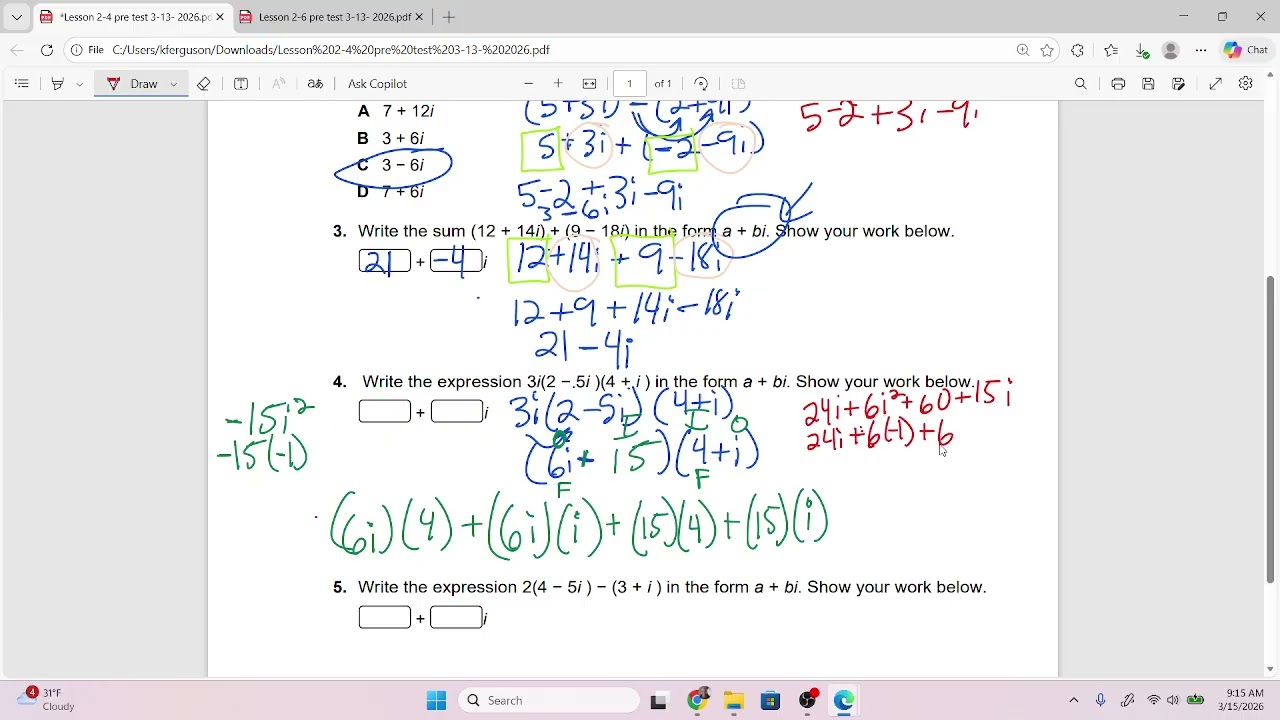 *Lesson 2-4 pre test 3-13- 2026.pd
Lesson 2-6 pre test 3-13- 2026.pdf
File C:/Users/kferguson/Downloads/Lesson%202-4%20pre%20test%203-13-%202026.pdf
Chat
Draw
Ask Copilot
1 of 1
A 7 + 12i
B 3 + 6i
C 3 − 6i
D 7 + 6i
5 + 3i + (-2 - 9i)
5 - 2 + 3i - 9i
3 - 6i
5 - 2 + 3i - 9i
3. Write the sum (12 + 14i) + (9 − 18i) in the form a + bi. Show your work below.
21 + -4 i
12 + 14i + 9 - 18i
12 + 9 + 14i - 18i
21 - 4i
4. Write the expression 3i(2 − 5i )(4 + i ) in the form a + bi. Show your work below.
+ i
3i(2 - 5i)(4 + i)
O I I O
(6i + 15)(4 + i)
F F
-15i²
-15(-1)
24i + 6i² + 60 + 15i
24i + 6(-1) + 6
(6i)(4) + (6i)(i) + (15)(4) + (15)(i)
5. Write the expression 2(4 − 5i ) − (3 + i ) in the form a + bi. Show your work below.
+ i
4
31°F
Search
9:15 AM
3/15/2026